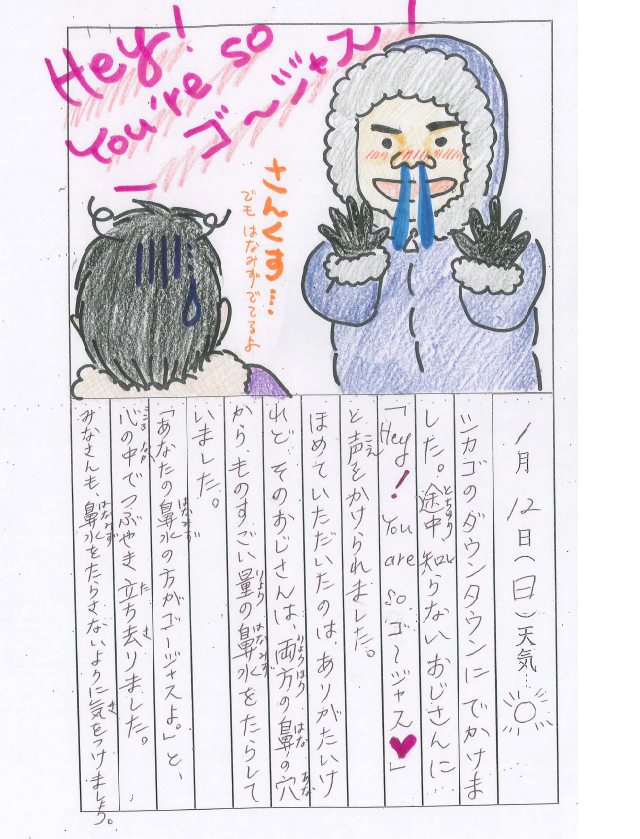 Hey!
You're so
ゴ〜ジャス!
さんくす…
でも はなみずでてるよ
1月12日(日)天気…
シカゴのダウンタウンにでかけま
した。途中知らないおじさんに
とちゅう し
「Hey! You are so ゴ〜ジャス♥」
と声をかけられました。
こえ
ほめていただいたのは、ありがたいけ
れど、そのおじさんは、両方の鼻の穴
りょうほう はな あな
から、ものすごい量の鼻水をたらして
りょう はなみず
いました。
「あなたの鼻水の方がゴ〜ジャスよ。」と、
はなみず ほう
心の中でつぶやき立ち去りました。
こころ なか た さ
みなさんも、鼻水をたらさないように気をつけましょう。
はなみず き